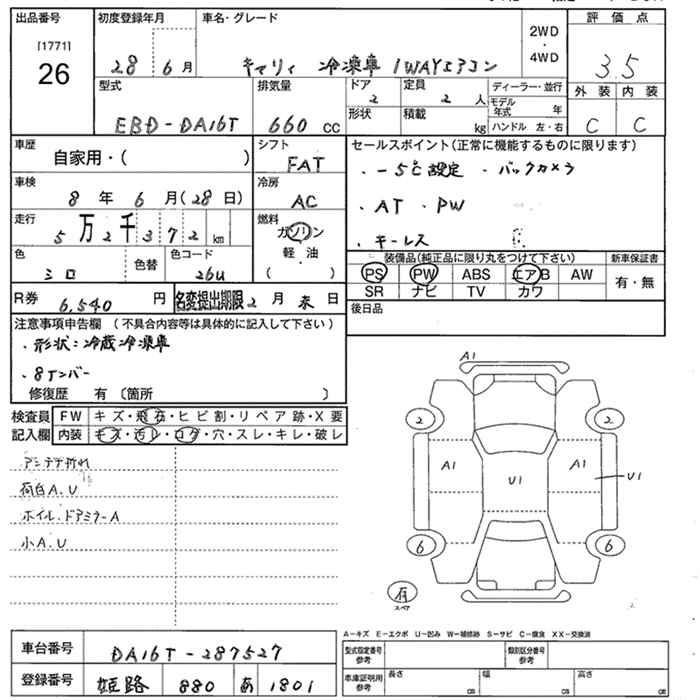 出品番号 初度登録年月 車名・グレード 2WD・4WD 評価点
[1771]
26
28 6月 キャリィ 冷凍車 1WAYエアコン 3.5
型式 排気量 ドア 2 定員 2人 ディーラー・並行 外装 内装
形状 積載 kg モデル年式 年
EBD-DA16T 660cc ハンドル 左・右 C C
車歴 シフト セールスポイント(正常に機能するものに限ります)
自家用・( ) FAT ・-5℃設定 ・バックカメラ
車検 冷房
8年 6月(28日) AC ・AT ・PW
走行 燃料
5万2千372km ガソリン ・キーレス
色 色替 色コード 軽・油
シロ 26U ( )
装備品(純正品に限り丸をつけて下さい) 新車保証書
PS PW ABS エアB AW 有・無
SR ナビ TV カワ
R券 6,540円 名変提出期限 2月末日 後日品
注意事項申告欄 (不具合内容等は具体的に記入して下さい)
・形状:冷蔵冷凍車
・8ナンバー
修復歴 有 〔箇所 〕
検査員 FW キズ・飛石・ヒビ割・リペア跡・X要
記入欄 内装 キズ・汚レ・コゲ・穴・スレ・キレ・破レ
アンテナ折れ
荷台A.U
ホイル・ドアミラーA
小A.U
A1
2 2
A1 U1 A1 U1
6 6
有
スペア
A-キズ E-エクボ U-凹み W-補修跡 S-サビ C-腐食 XX-交換済
車台番号 DA16T-287527 型式指定番号 参考 類別区分番号 参考
登録番号 姫路 880 あ 1801 車庫証明用 参考 長さ cm 幅 cm 高さ cm